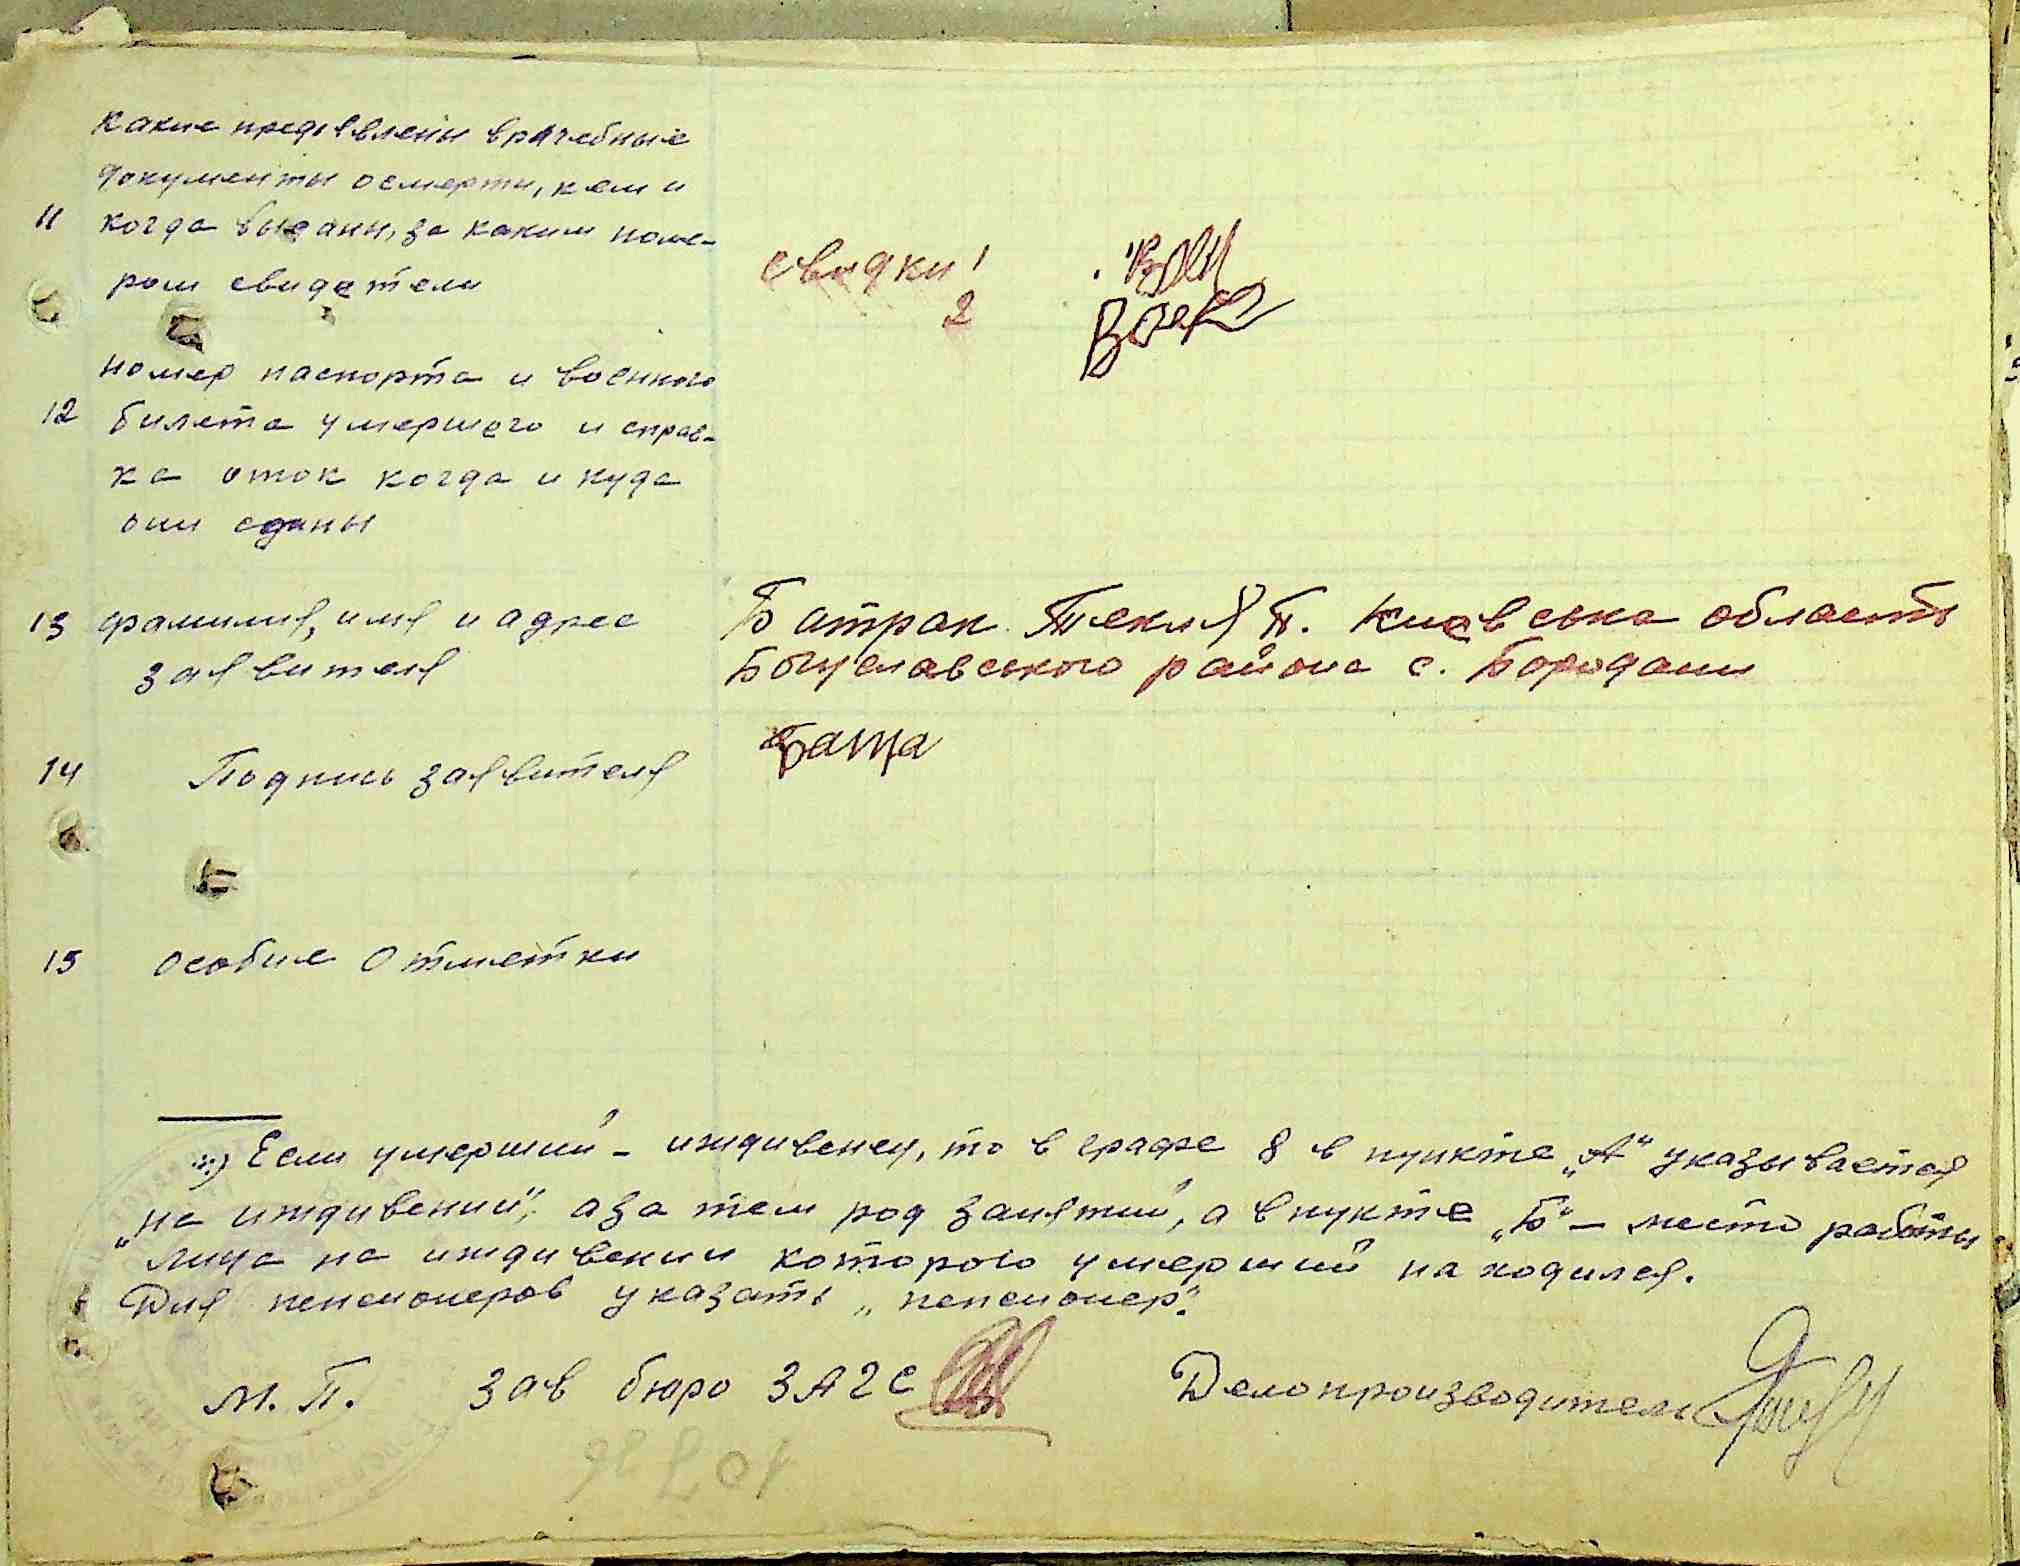 какие предявлены врачебные
документы о смерти, кем и
11 когда выданы, за каким номе-
ром свидетели
свидки 1
2
номер паспорта и военного
12 билета умершего и справ-
ка оток когда и куда
они сданы
13 фамилия, имя и адрес
заявителя
Батрак Текля П. Киевська область
Богуславського района с. Бородани
14 Подпись заявителя
15 особые отметки
Если умерший - иждивенец, то в графе 8 в пункте „А“ указывается
„на иждивении“, а за тем род занятий, а в пункте „Б“ - место работы
лица на иждивении которого умерший находился.
Для пенсионеров указать „пенсионер“.
М. П. Зав бюро ЗАГС Делопроизводитель